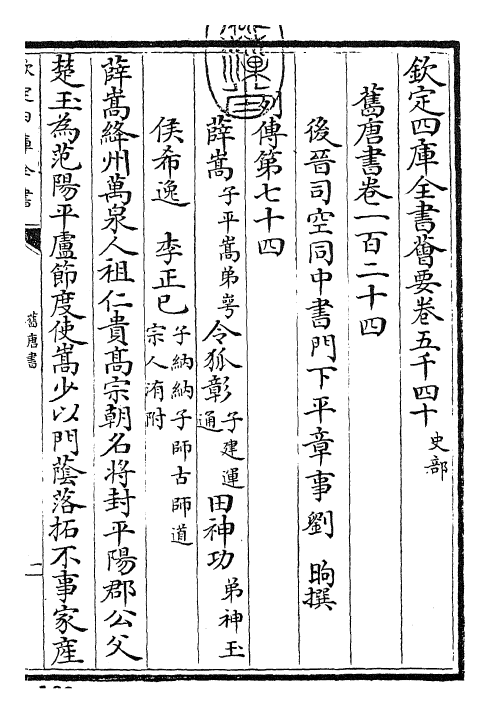 欽定四庫全書薈要卷五千四十 史部
舊唐書卷一百二十四
後晉司空同中書門下平章事劉 昫撰
列傳第七十四
薛嵩 子平嵩弟萼 令狐彰 子建運通 田神功 弟神玉
侯希逸 李正己 子納納子師古師道宗人洧附
薛嵩絳州萬泉人祖仁貴髙宗朝名將封平陽郡公父
楚玉為范陽平盧節度使嵩少以門蔭落拓不事家産
欽定四庫全書
舊唐書